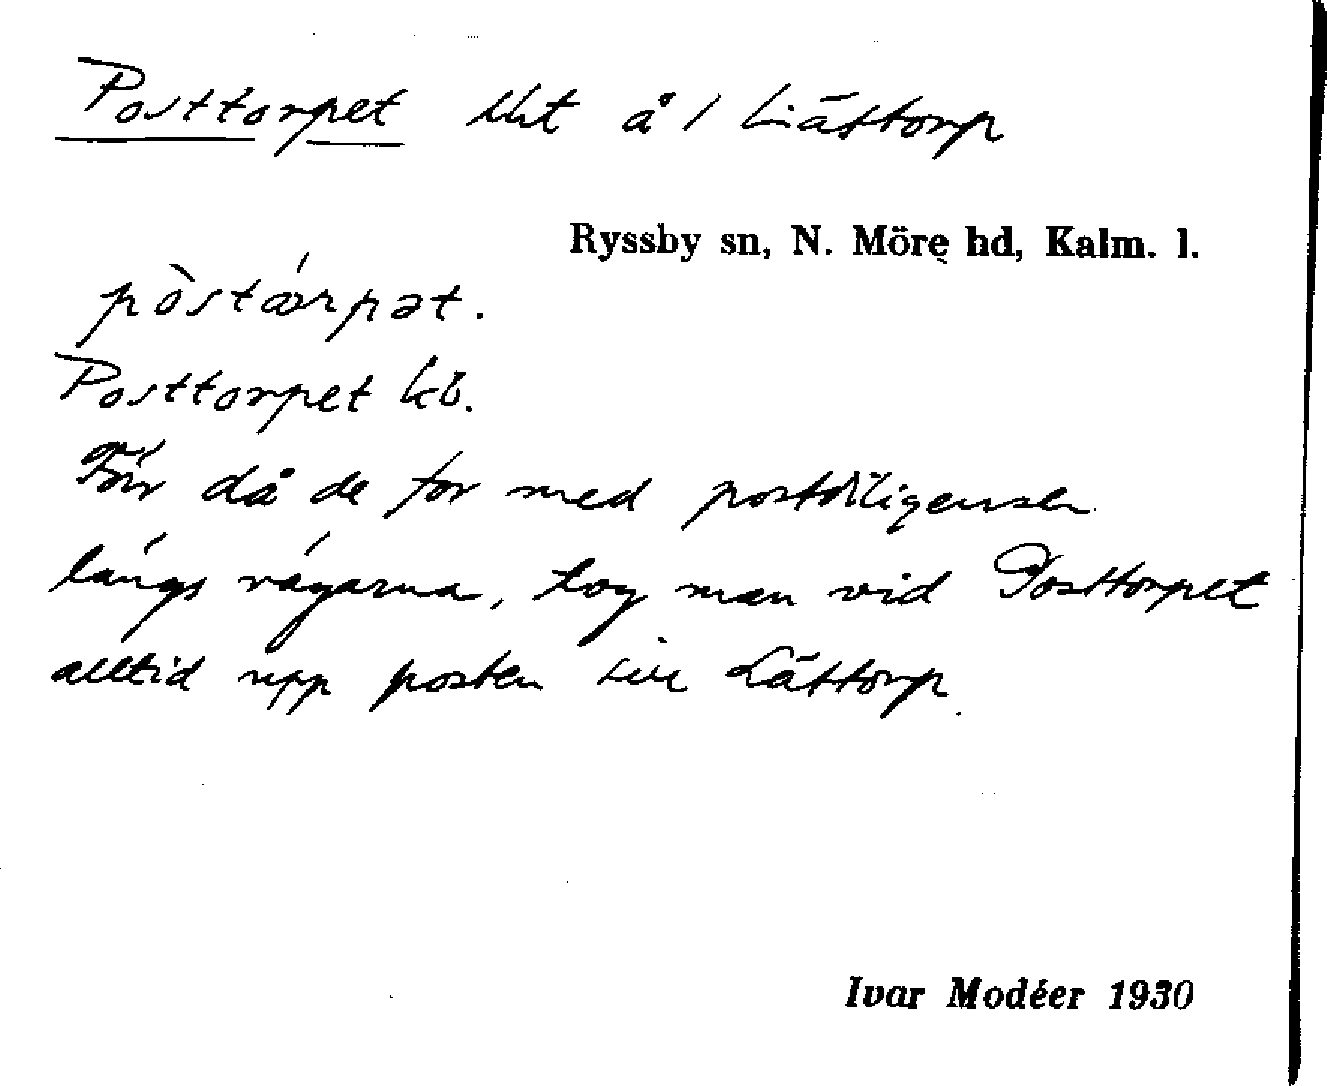 Posttorpet lht å 1 Lättorp
Ryssby sn, N. Möre hd, Kalm. l.
pòstórpət.
Posttorpet kb.
Förr då de for med postdiligensen
längs vägarna, tog man vid Posttorpet
alltid upp posten till Lättorp.
Ivar Modéer 1930